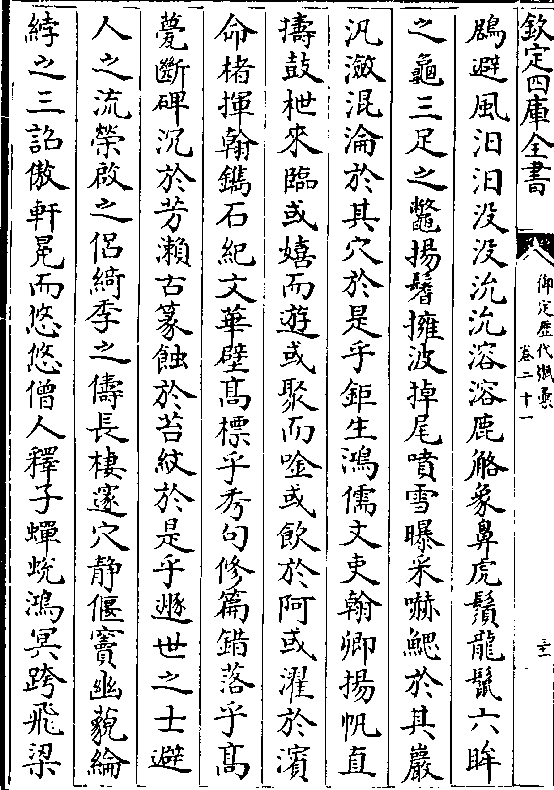 欽定四庫全書
御定歴代賦彙
卷二十一
三十一
鷁避風汨汨没没沇沇溶溶鹿觡象鼻虎鬚龍鬛六眸
之龜三足之鼈揚鬐擁波掉尾噴雪曝采嚇鰓於其巖
汎瀲混淪於其穴於是乎鉅生鴻儒文吏翰卿揚帆直
擣鼓枻來臨或嬉而遊或聚而唫或飲於阿或濯於濱
命楮揮翰鐫石紀文華壁髙標乎秀句修篇錯落乎髙
甍斷碑沉於芳瀨古篆蝕於苔紋於是乎遯世之士避
人之流榮啟之侣綺季之儔長棲邃穴静偃竇幽藐綸
綍之三詔傲軒冕而悠悠僧人釋子蟬蜕鴻冥跨飛梁